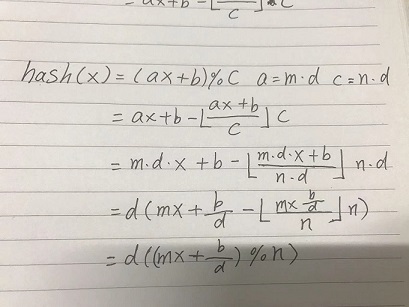 ax+b-⌊ /c⌋·C
hash(x) = (ax+b)%C a=m·d c=n·d
= ax+b-⌊(ax+b)/C⌋C
= m·d·x+b-⌊(m·d·x+b)/(n·d)⌋n·d
= d(mx+b/d-⌊(mx b/d)/n⌋n)
= d((mx+b/d)%n)